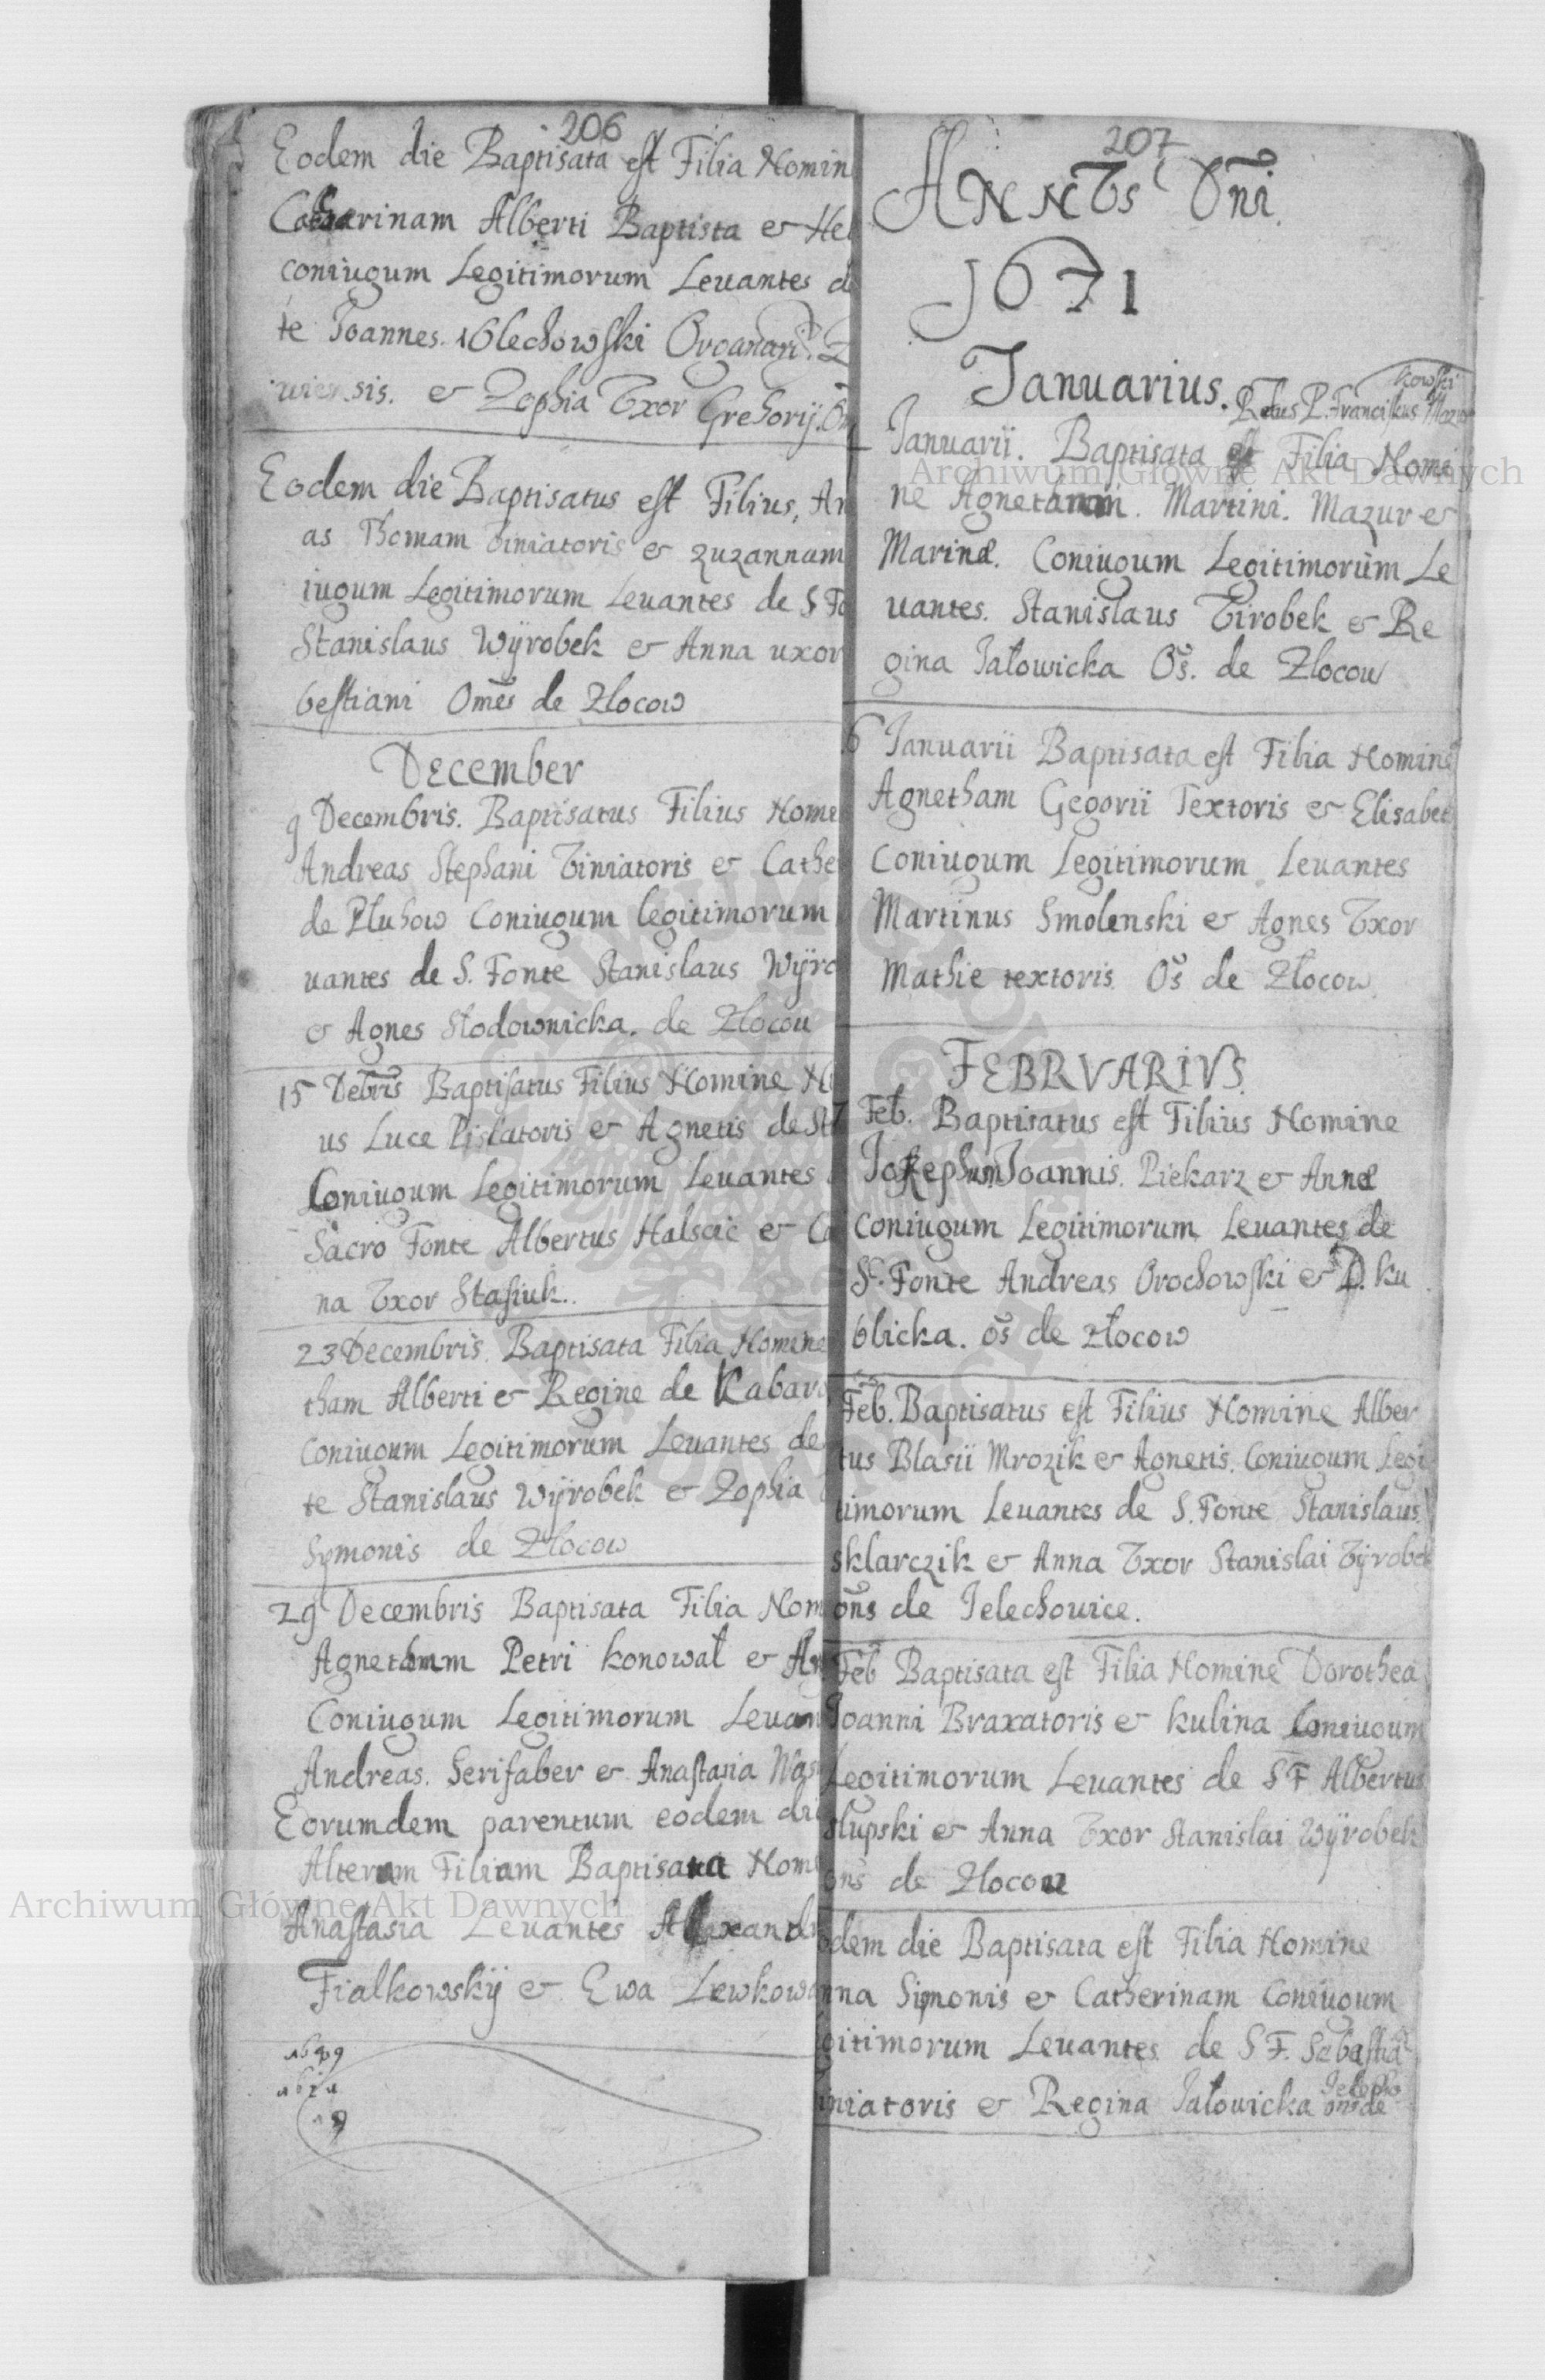 206
Eodem die Baptisata est Filia Nomin
Catharinam Alberti Baptista & Hel
coniugum Legitimorum Leuantes d
te Joannes. Olechowski Organari
uiensis. & Zophia Vxor Grehorij. Om
Eodem die Baptisatus est Filius, An
as Thomam Viniatoris & zuzannam
iugum Legitimorum Leuantes de S Fo
Stanislaus Wÿrobek & Anna uxor
bestiani Omēs de Zlocow
December
9 Decembris. Baptisatus Filius Nome
Andreas Stephani Viniatoris & Cathe
de Pluhow Coniugum legitimorum
uantes de S. Fonte Stanislaus Wÿro
& Agnes Slodownicka. de Zlocou
15 Debris Baptisatus Filius Nomine
us Luce Piscatoris & Agnetis de
Coniugum Legitimorum Leuantes
Sacro Fonte Albertus Halscic & Ca
na Vxor Stasiuk.
23 Decembris. Baptisata Filia Nomine
tham Alberti & Regine de Kabaro
Coniugum Legitimorum Leuantes de
te Stanislaus Wÿrobek & Zophia
Symonis de Zlocow
29 Decembris Baptisata Filia Nom
Agnetham Petri konował & An
Coniugum Legitimorum Leuan
Andreas. Serifaber & Anastasia Was
Eorumdem parentum eodem die
Alteram Filiam Baptisata Nom
Anastasia Leuantes Alexandr
Fialkowskÿ & Ewa Lewkowa
207
ANNVS Dn̄i
1671
Januarius.
kowski
P. Franciskus
Januarii. Baptisata est Filia Nomi
ne Agnetham. Martini. Mazur &
Marinæ. Coniugum Legitimorum Le
uantes. Stanislaus Virobek & Re
gina Jałowicka Os̄. de Zlocow
6 Januarii Baptisata est Filia Nomine
Agnetham Gegorii Textoris & Elisabet
Coniugum Legitimorum Leuantes
Martinus Smolenski & Agnes Vxor
Mathie textoris Os̄ de Złocow
FEBRVARIVS
Feb. Baptisatus est Filius Nomine
Josephum Joannis. Piekarz & Annæ
coniugum Legitimorum Leuantes de
S. Fonte Andreas Orochowski & D. ku
blicka. os̄ de złocow
Feb. Baptisatus est Filius Nomine Alber
tus Blasii Mrozik & Agnetis. Coniugum Legi
timorum Leuantes de S. Fonte Stanislaus
sklarczik & Anna Vxor Stanislai Vÿrobek
on̄s de Jelechowice.
Feb Baptisata est Filia Nomine Dorothea
Joanni Braxatoris & kulina Coniugum
Legitimorum Leuantes de S F Albertus
slupski & Anna Vxor Stanislai Wÿrobek
on̄s de Zlocou
odem die Baptisata est Filia Nomine
nna Simonis & Catherinam Coniugum
gitimorum Leuantes de S F. Sebastia
iniatoris & Regina Jałouicka on̄s de
Jelecho
Archiwum Główne Akt Dawnych
Archiwum Główne Akt Dawnych